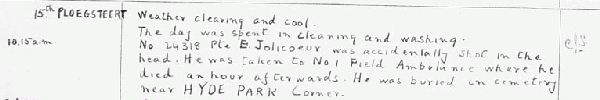 15th PLOEGSTEERT Weather clearing and cool.
The day was spent in cleaning and washing.
10.15am No 24318 Pte E. Jolicoeur was accidentally shot in the
head. He was taken to No 1 Field Ambulance where he
died an hour afterwards. He was buried in cemetery
near HYDE PARK Corner.